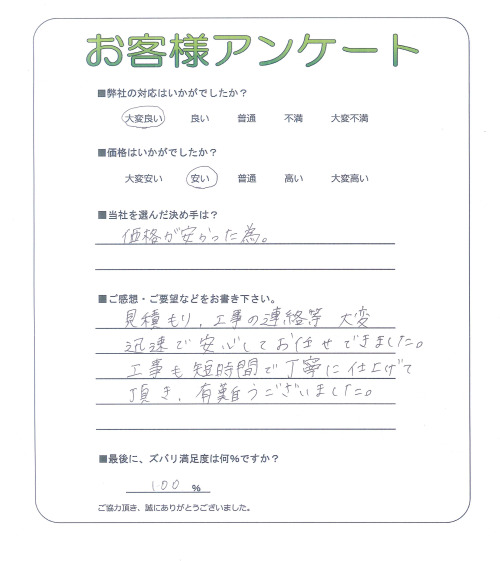 お客様アンケート
■弊社の対応はいかがでしたか？
大変良い 良い 普通 不満 大変不満
■価格はいかがでしたか？
大変安い 安い 普通 高い 大変高い
■当社を選んだ決め手は？
価格が安かった為。
■ご感想・ご要望などをお書き下さい。
見積もり、工事の連絡等 大変
迅速で安心してお任せできました。
工事も短時間で丁寧に仕上げて
頂き、有難うございました。
■最後に、ズバリ満足度は何%ですか？
100 %
ご協力頂き、誠にありがとうございました。